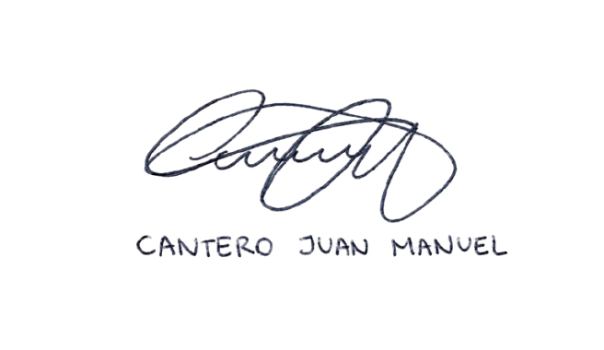 CANTERO JUAN MANUEL